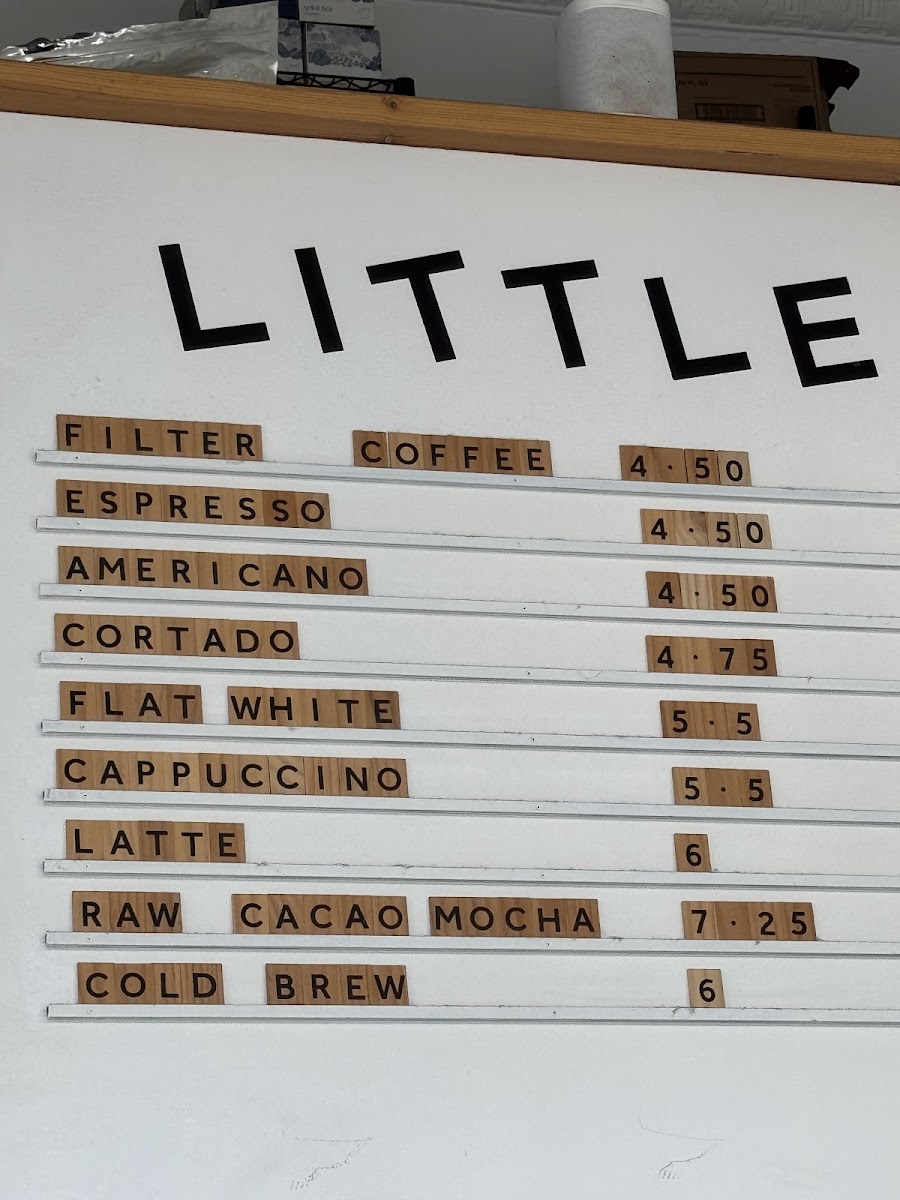 LITTLE
FILTER COFFEE 4·50
ESPRESSO 4·50
AMERICANO 4·50
CORTADO 4·75
FLAT WHITE 5·5
CAPPUCCINO 5·5
LATTE 6
RAW CACAO MOCHA 7·25
COLD BREW 6